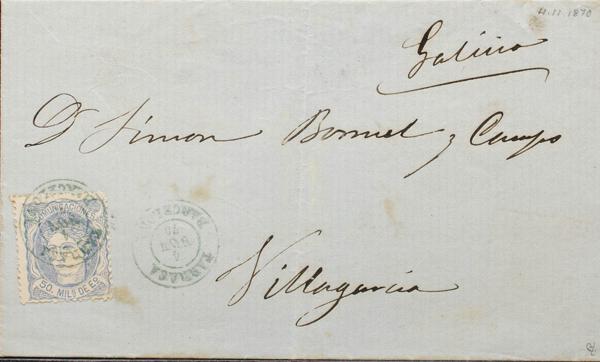 4.11.1870
Galicia
D. Simon Bonnet y Campo
Villagarcia
COMUNICACIONES
50. MILS DE EO
TARRASA
4
NOV
70
BARCELONA